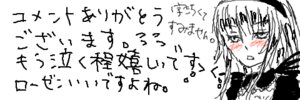 コメントありがとう
ございます。ろろろ
もう泣く程嬉しいですぅぐ
ローゼンいいですよね。
すみません。